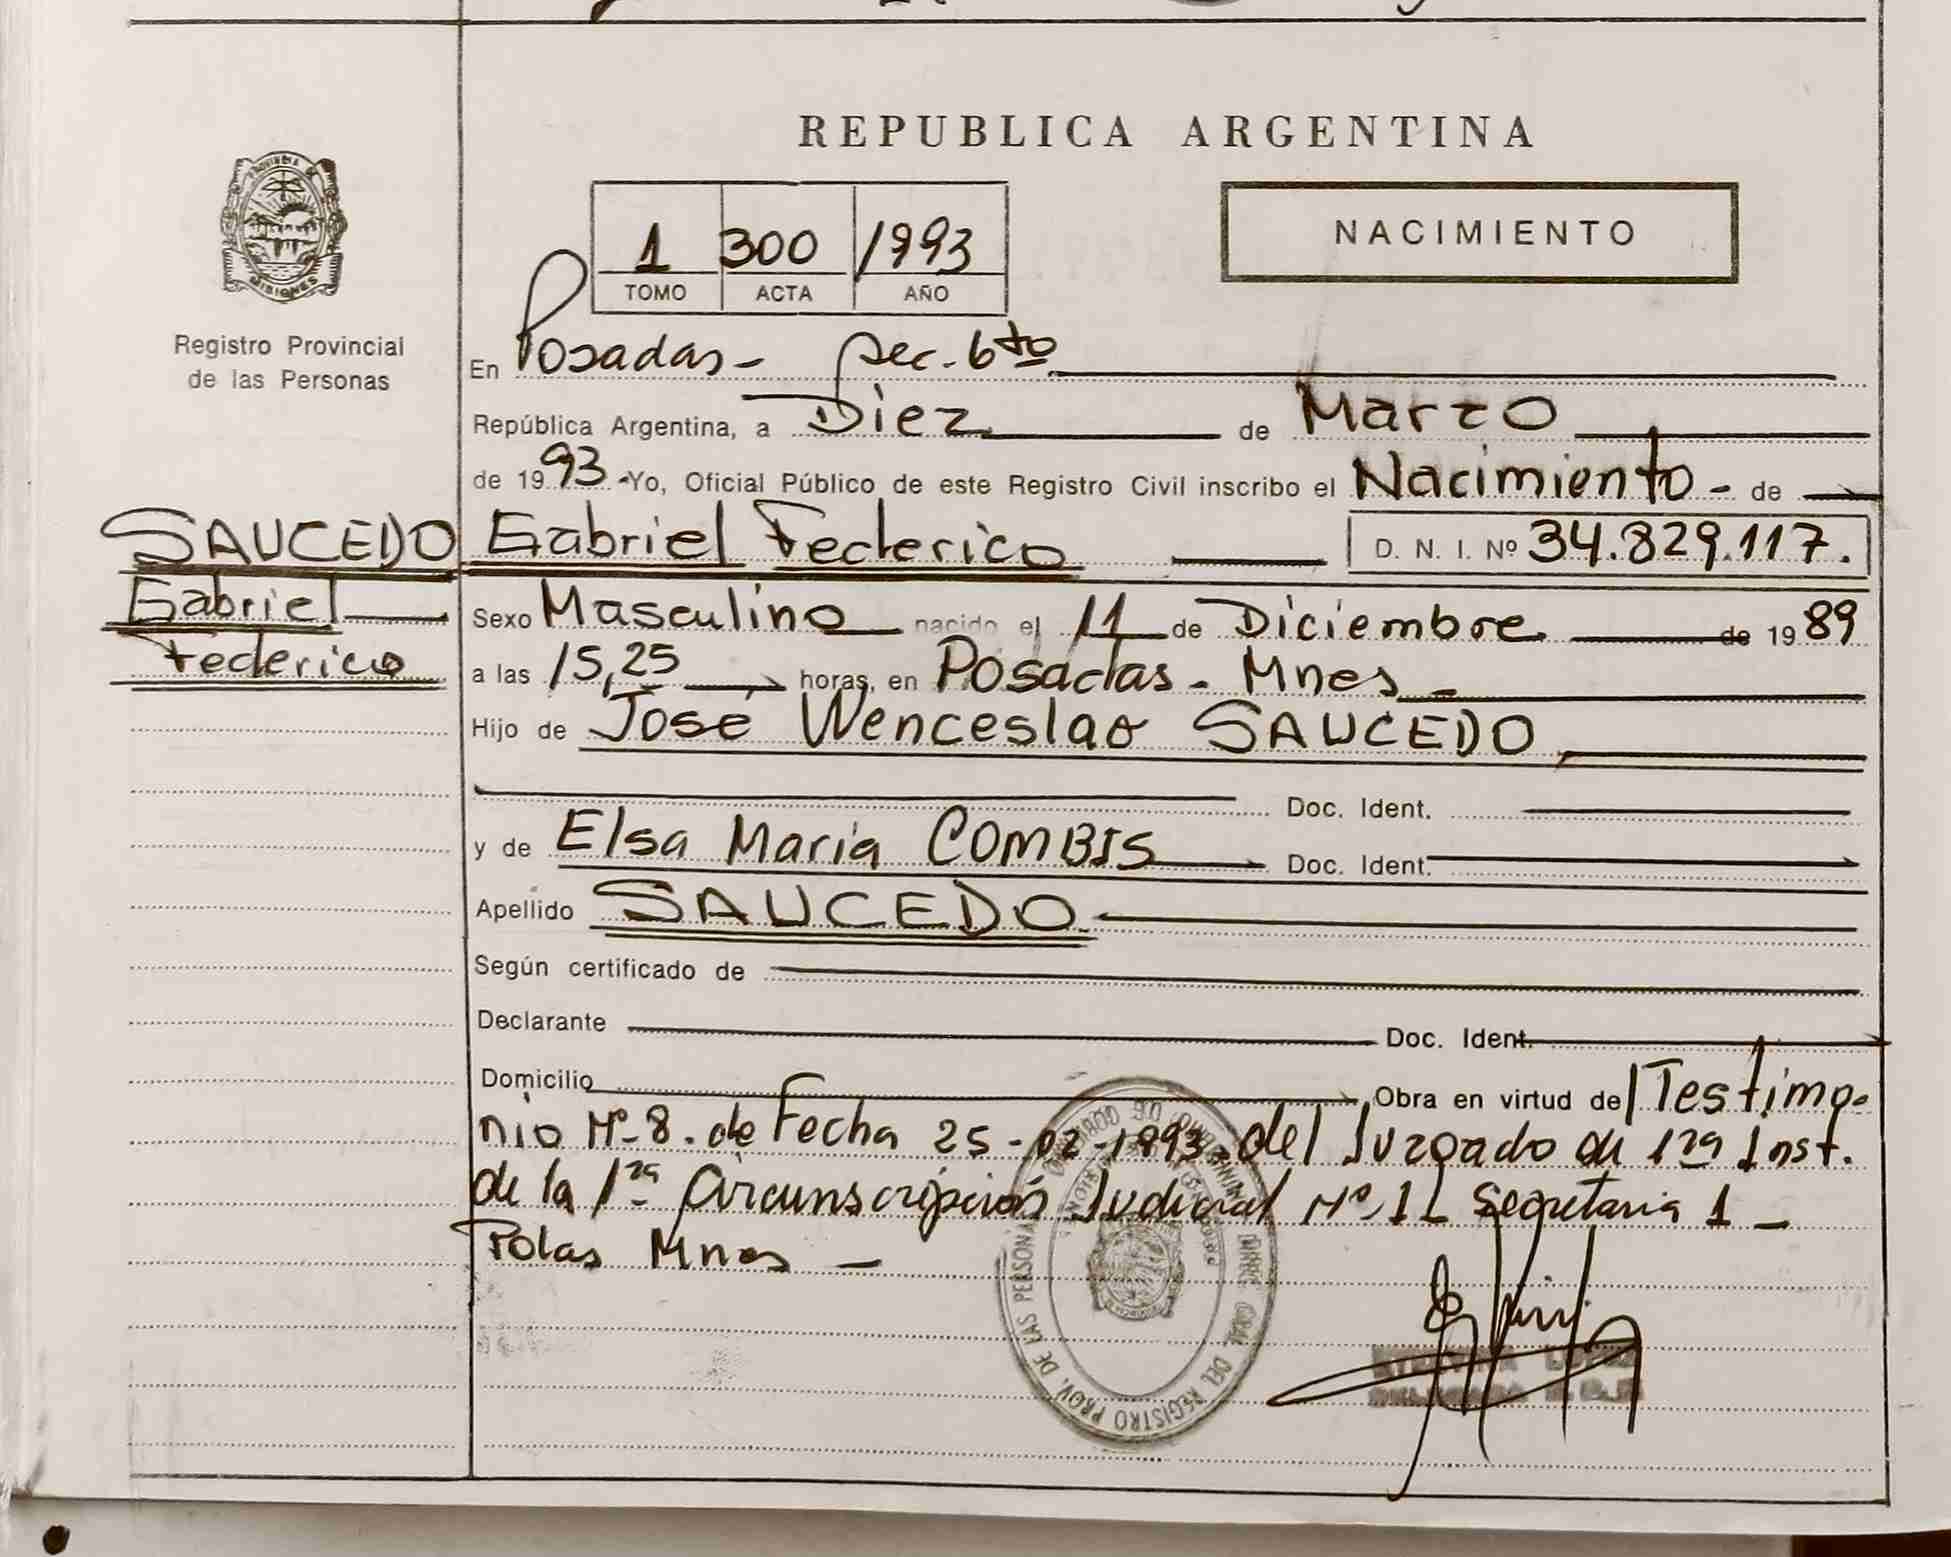 REPUBLICA ARGENTINA
PROVINCIA DE MISIONES
Registro Provincial
de las Personas
1 300 1993
TOMO ACTA AÑO
NACIMIENTO
En Posadas - sec. 6to
República Argentina, a Diez de Marzo
de 1993 - Yo, Oficial Público de este Registro Civil inscribo el Nacimiento - de
SAUCEDO Gabriel Federico D. N. I. Nº 34.829.117.
Gabriel
Federico
Sexo Masculino nacido el 11 de Diciembre de 1989
a las 15,25 horas, en Posadas - Mnes -
Hijo de José Wenceslao SAUCEDO
Doc. Ident.
y de Elsa Maria COMBIS Doc. Ident.
Apellido SAUCEDO
Según certificado de
Declarante Doc. Ident.
Domicilio Obra en virtud de Testimo-
nio Nº 8. de Fecha 25-02-1993. del Juzgado de 1ra Inst.
de la 1ra Circunscripción Judicial Nº 1 Secretaria 1 -
Pdas Mnes -
DEL REGISTRO PROV. DE LAS PERSONAS